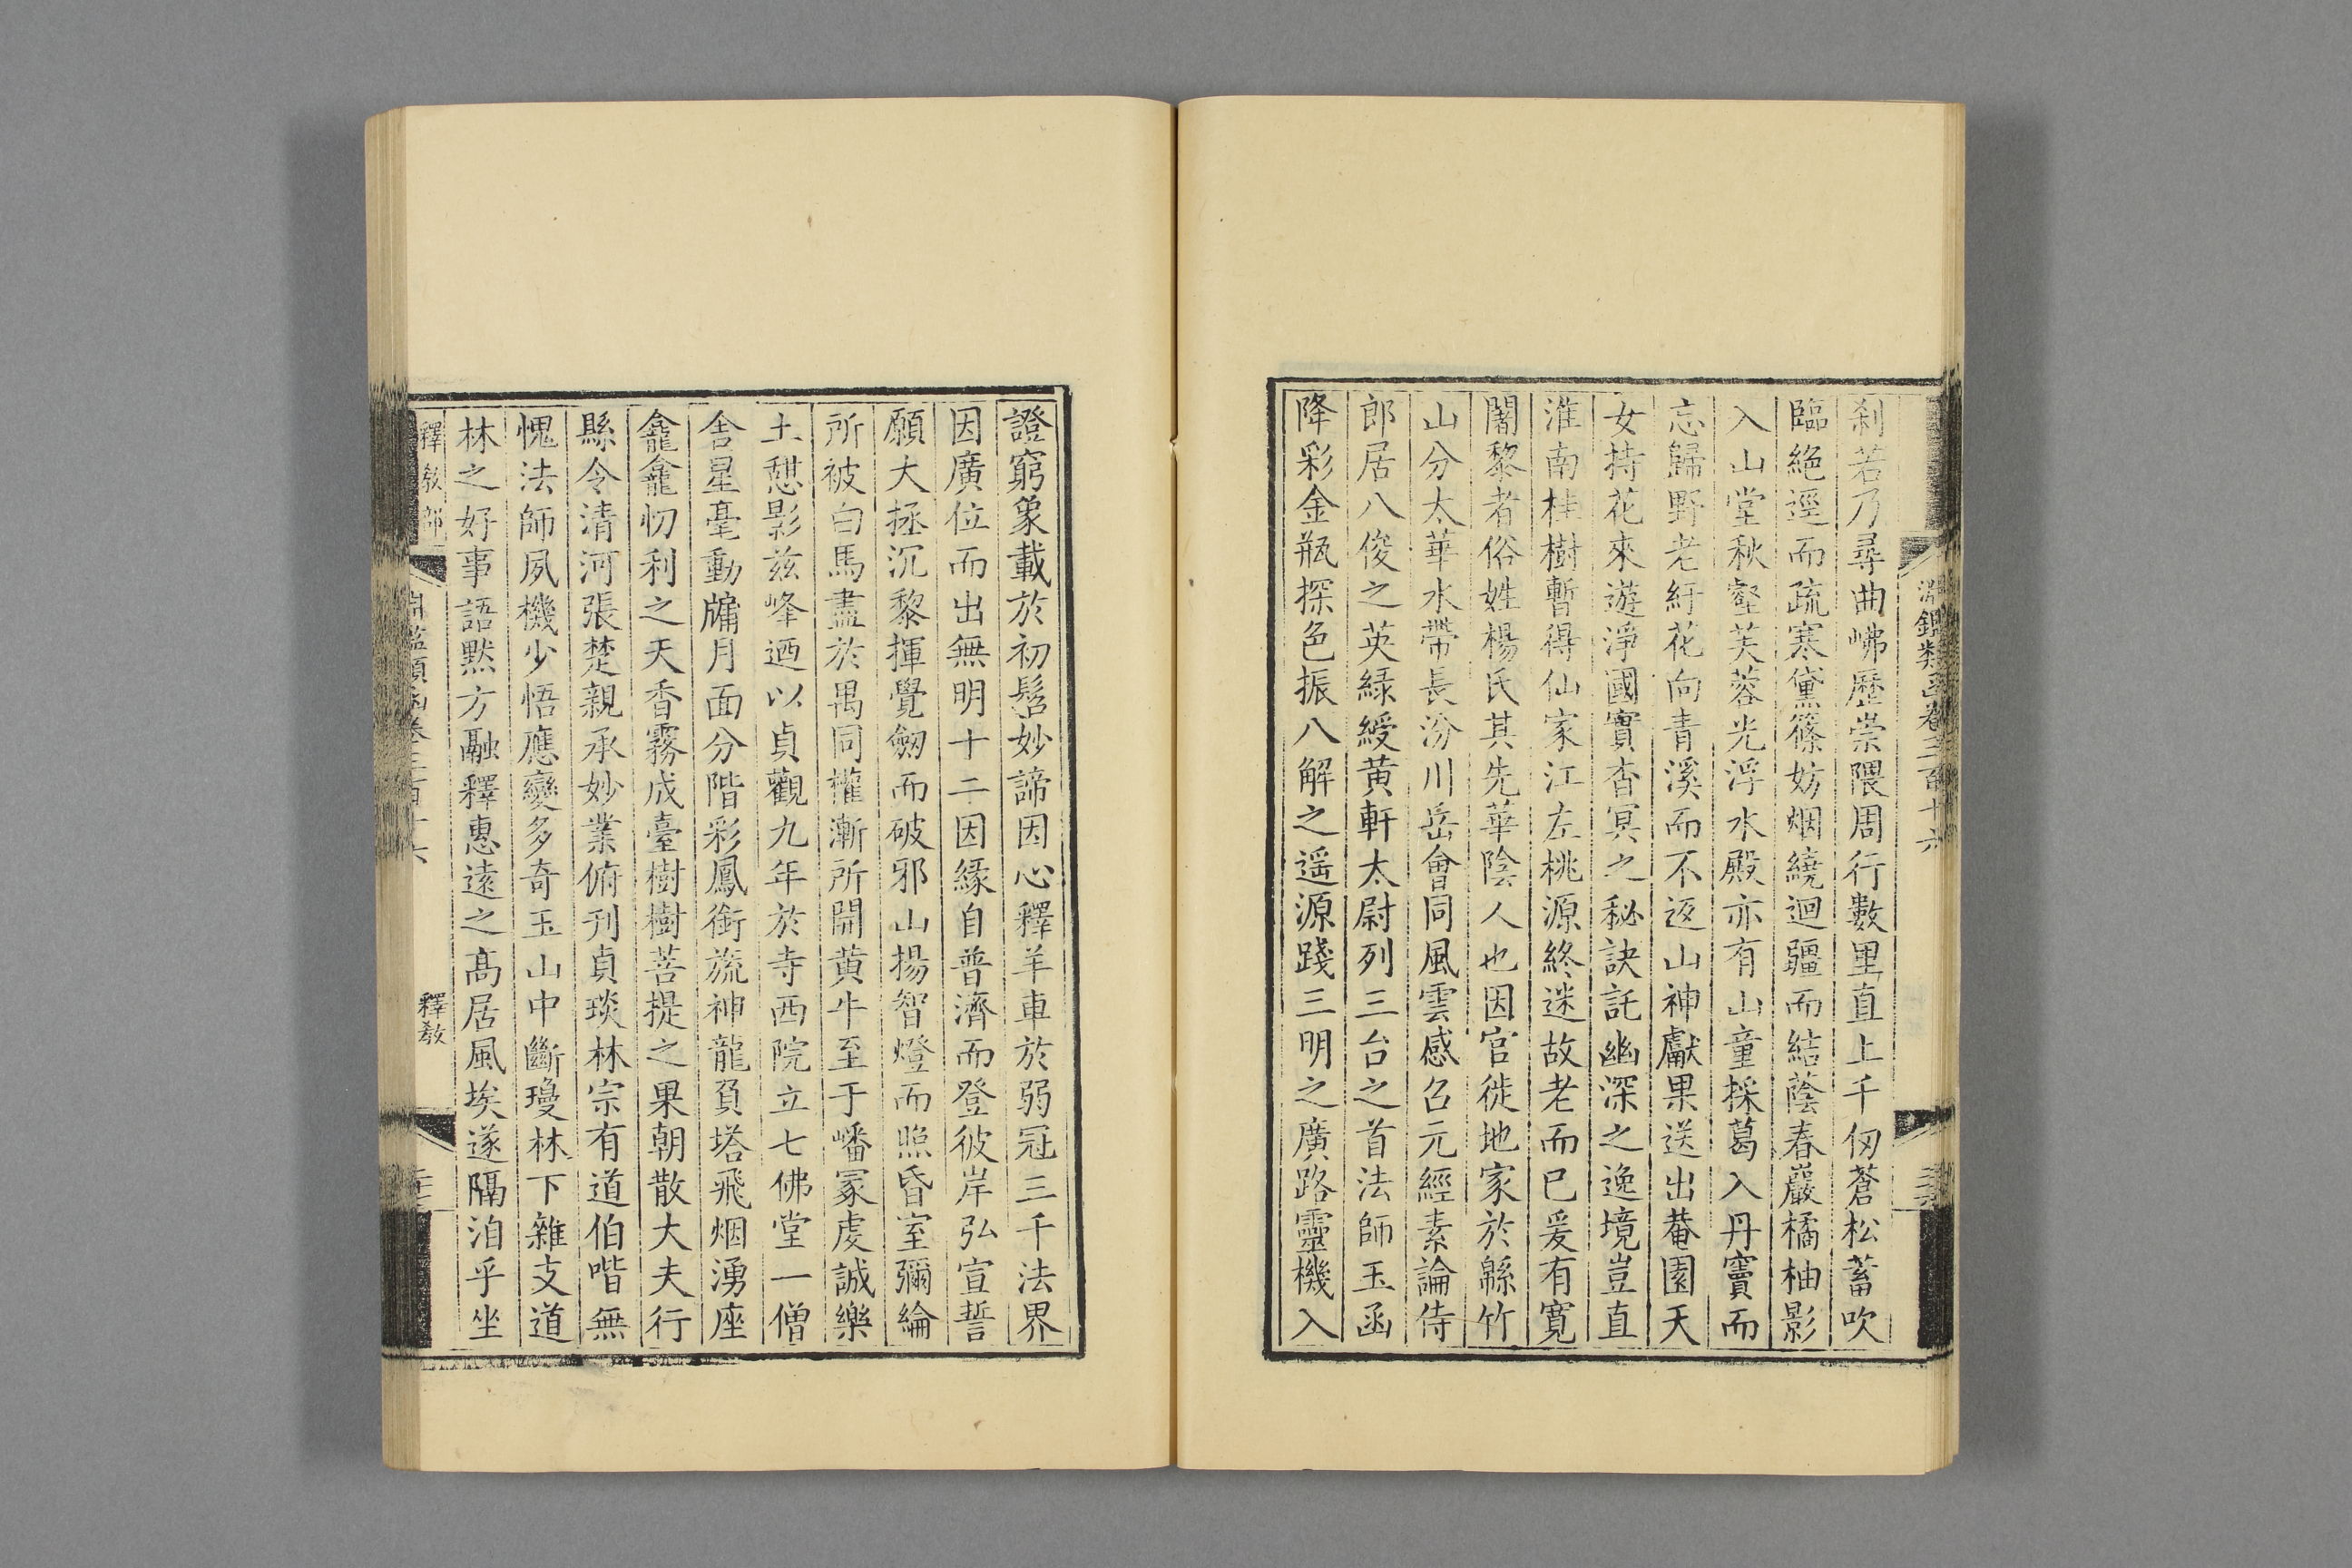 淵鑑類函卷三百十六
刹若乃尋曲岪歷崇隈周行數里直上千仞蒼松蓄吹
臨絕逕而疏寒黛篠妨烟繞迴疆而結蔭春巖橘柚影
入山堂秋壑芙蓉光浮水殿亦有山童採葛入丹竇而
忘歸野老紆花向青溪而不返山神獻果送出菴園天
女持花來遊淨國實杳冥之秘訣託幽深之逸境豈直
淮南桂樹暫得仙家江左桃源終迷故老而已爰有寬
闍黎者俗姓楊氏其先華陰人也因官徙地家於緜竹
山分太華水帶長汾川岳會同風雲感召元經素論侍
郎居八俊之英綠綬黃軒太尉列三台之首法師玉函
降彩金瓶探色振八解之遥源踐三明之廣路靈機入
證窮象載於初髫妙諦因心釋羊車於弱冠三千法界
因廣位而出無明十二因緣自普濟而登彼岸弘宣誓
願大拯沉黎揮覺劒而破邪山揚智燈而照昏室彌綸
所被白馬盡於禺同權漸所開黄牛至于嶓冢虔誠樂
土憇影兹峰迺以貞觀九年於寺西院立七佛堂一僧
舍星毫動牖月面分階彩鳳銜旒神龍負塔飛烟湧座
龕龕忉利之天香霧成臺樹樹菩提之果朝散大夫行
縣令清河張楚親承妙業俯刋貞琰林宗有道伯喈無
愧法師夙機少悟應變多奇玉山中斷瓊林下雜支道
林之好事語黙方融釋惠遠之髙居風埃遂隔洎乎坐
釋教部 淵鑑類函卷三百十六 釋教